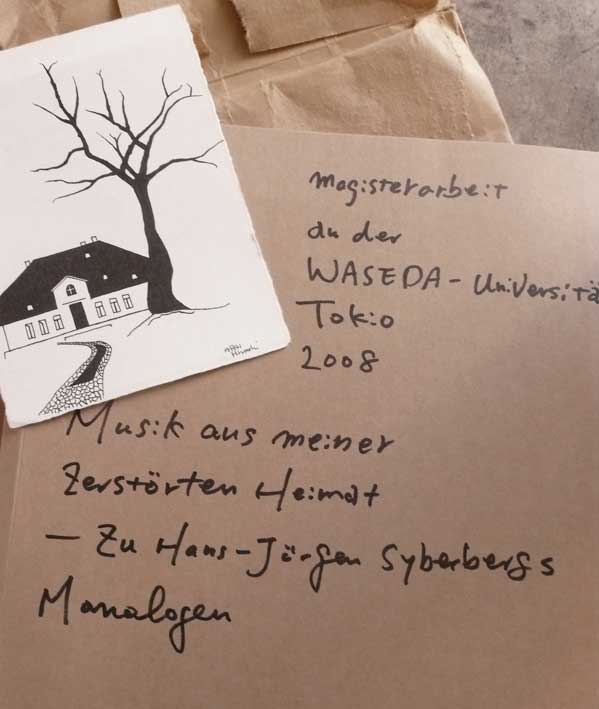 Magisterarbeit
du der
WASEDA-Universitä
Tokio
2008
Musik aus meiner
Zerstörten Heimat
— Zu Hans-Jürgen Syberbergs
Monologen